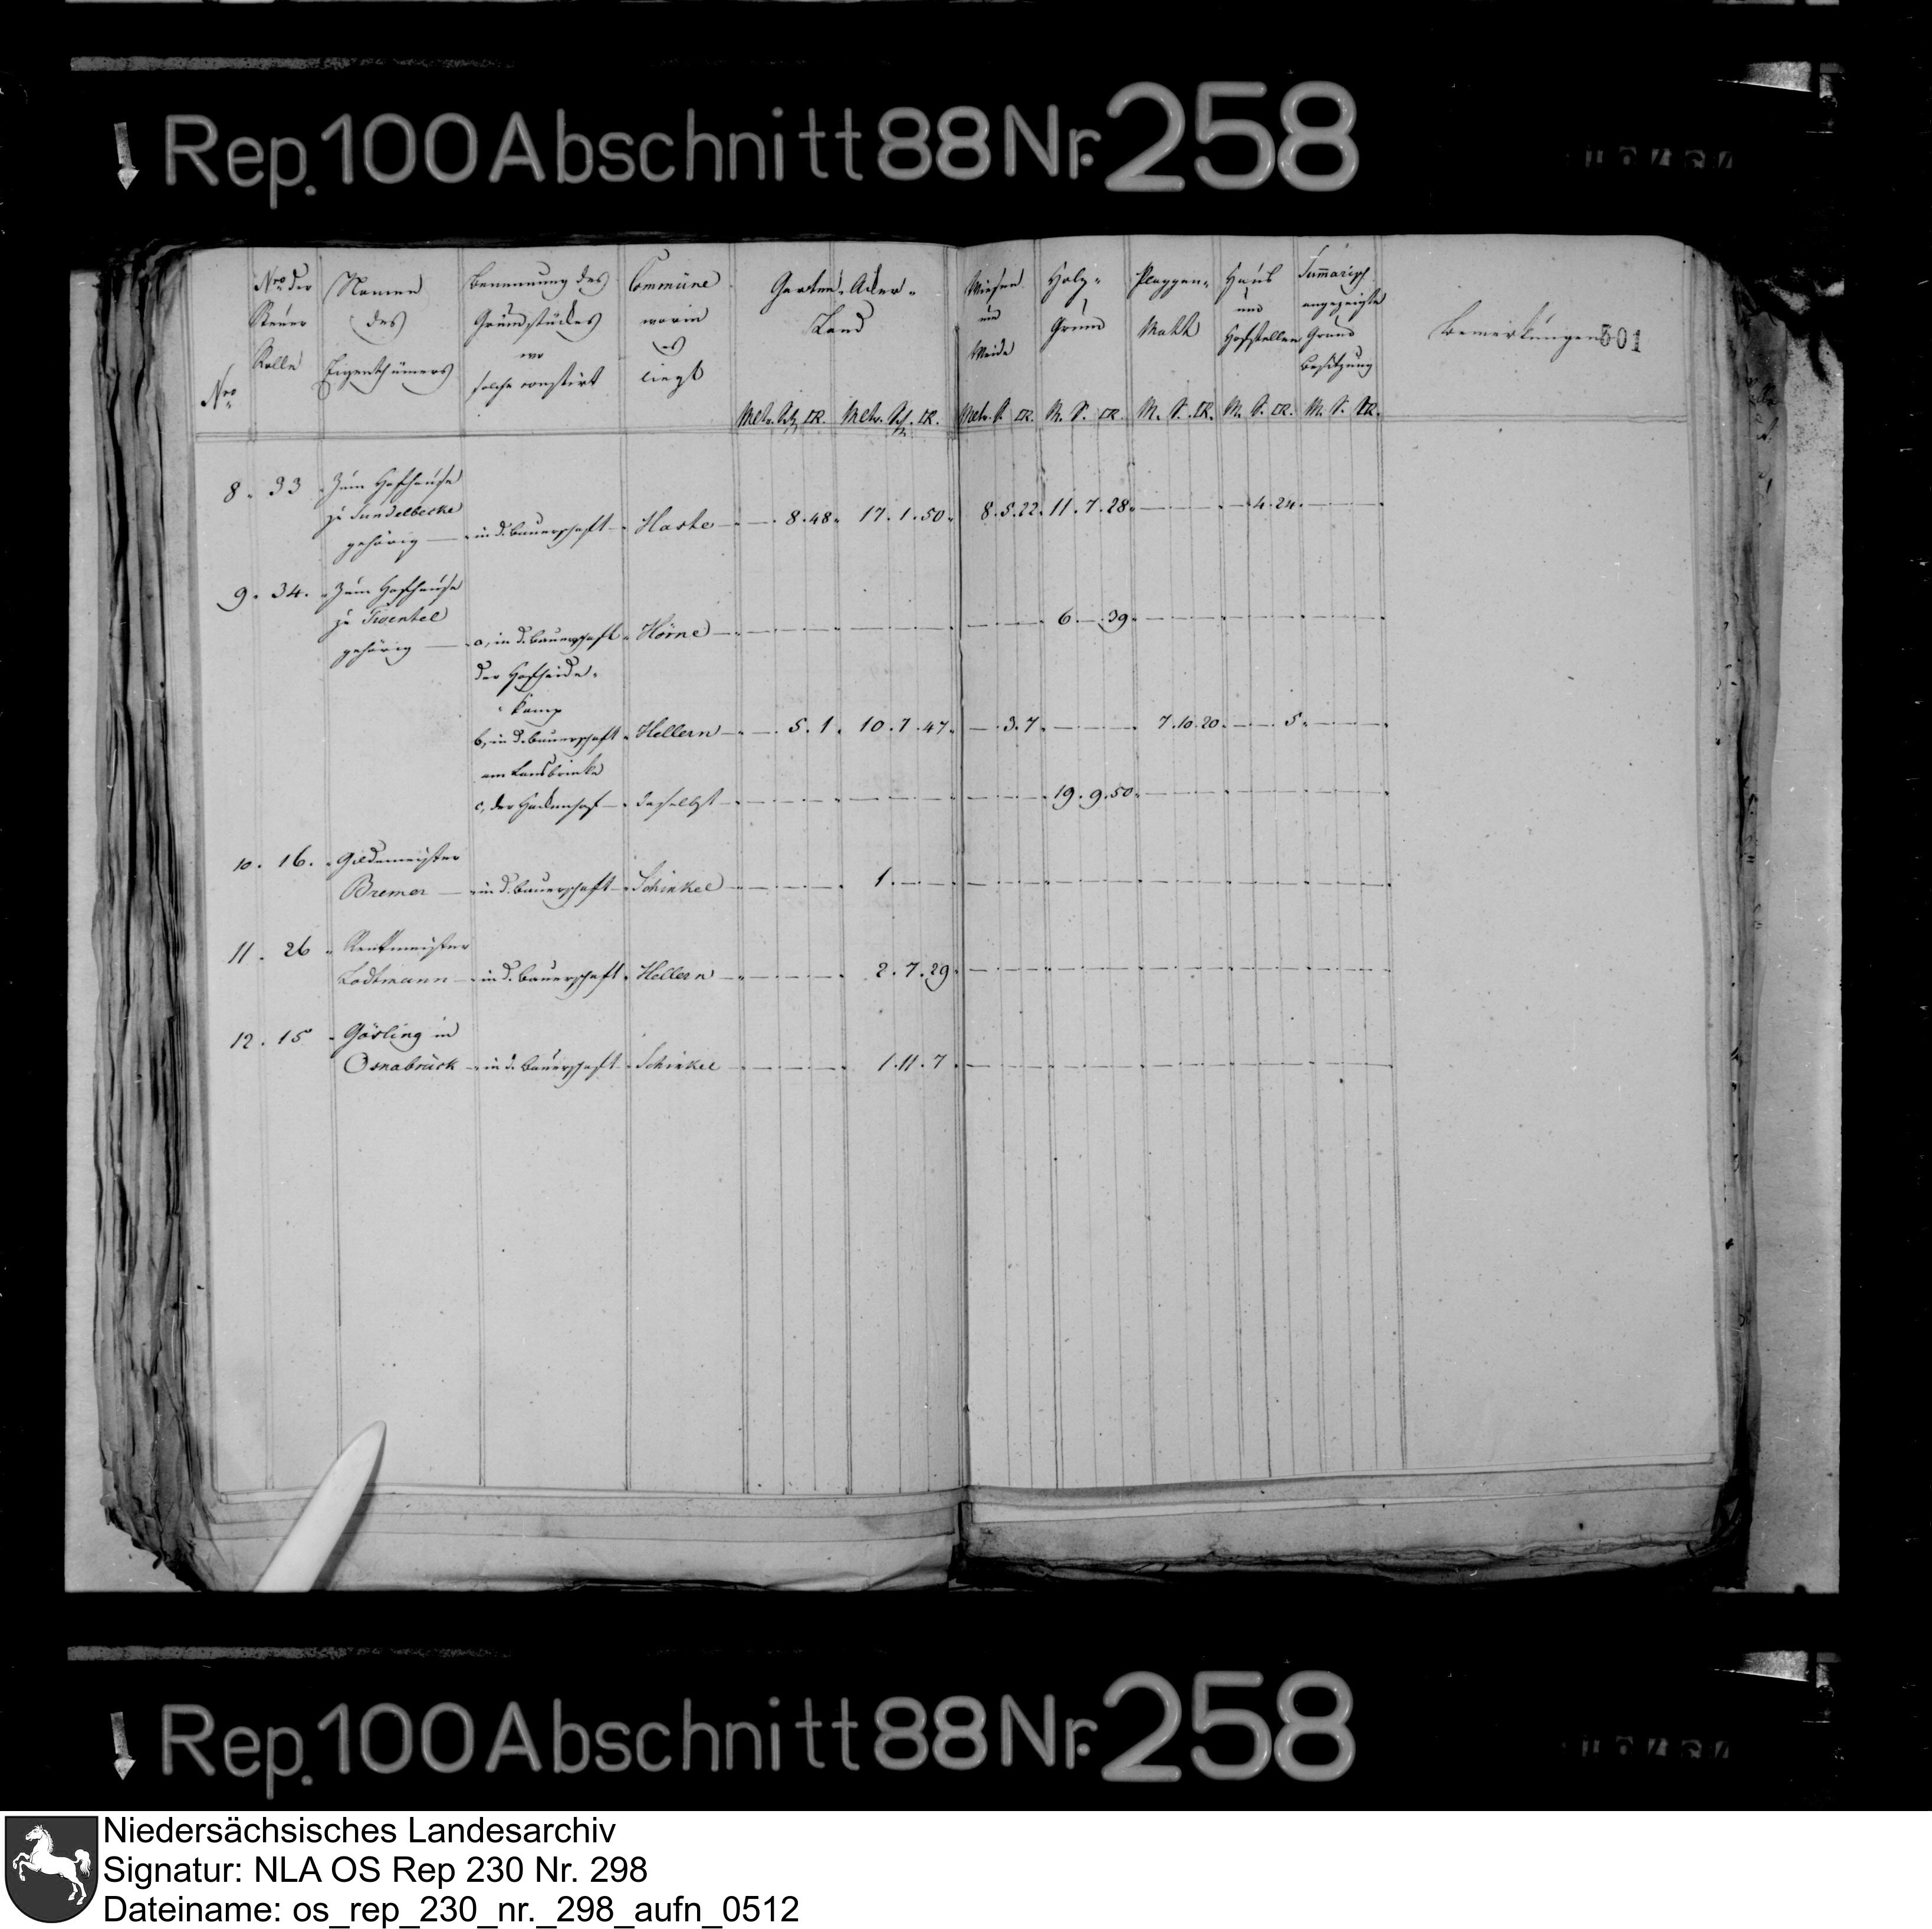 Rep. 100 Abschnitt 88 Nr. 258
Nro
Nro der
Steuer
Rolle
Namen
des
Eigenthümers
Benennung des
Grundstückes
wo
solche constirt
Commüne
worin
es
liegt
Garten- Acker-
Land
Wiesen
und
Weide
Holz-
Grund
Plaggen-
Matt
Haus
und
Hofstellen
Sum̄arisch
angezeigte
Grund
Besitzung
Bemerkungen
501
M. S. □R. M. S. □R. M. S. □R. M. S. □R. M. S. □R. M. S. □R. M. S. □R.
8. 33 Zum Hofhause
zu Sundelbecke
gehörig — in d. Bauerschaft — Haste — 8.48. 17.1.50. 8.5.22. 11.7.28. — 4.24. —
9. 34. Zum Hofhause
zu
gehörig — a, in d. Bauerschaft Hörne — 6. — 39. —
der Hofheide-
Kamp
b, in d. Bauerschaft Hellern — 5.1. 10.7.47. — 3.7. — 7.10.20. — 5. —
am
c, der — daselbst — 19.9.50. —
10. 16. Gildemeister
Bremer — in d. Bauerschaft Schinkel — 1. —
11. 26 Rentmeister
Lodtmann — in d. Bauerschaft Hellern — 2.7.29. —
12. 15 Gösling in
Osnabrück — in d. Bauerschaft Schinkel — 1.11.7 —
Rep. 100 Abschnitt 88 Nr. 258
Niedersächsisches Landesarchiv
Signatur: NLA OS Rep 230 Nr. 298
Dateiname: os_rep_230_nr._298_aufn_0512